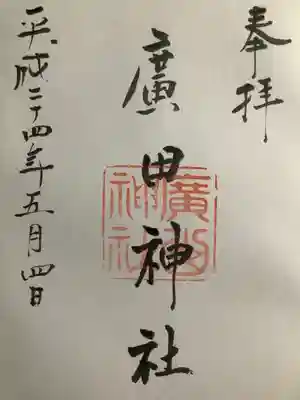 奉拝
廣田神社
廣田神社
平成二十四年五月四日